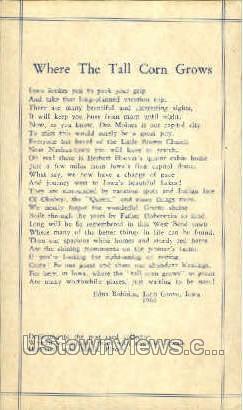 Where The Tall Corn Grows
Iowa invites you to pack your grip
And take that long-planned vacation trip.
There are many beautiful and interesting sights,
It will keep you busy from morn until night.
Now, as you know, Des Moines is our capitol city
To miss this would surely be a great pity.
Everyone has heard of the Little Brown Church
Near Nashua town you will have to search.
Or and there is Herbert Hoover's quaint cabin home
Just a few miles from Iowa's first capitol dome.
What say, we now have a change of pace
And journey west to Iowa's beautiful lakes?
They are surrounded by vacation spots and Indian lore
Of Okoboji, the "Queen," and many things more.
We nearly forgot the wonderful Grotto shrine
Built through the years by Father Dobberstein so kind
Long will he be remembered in this West Bend town
Where many of the better things in life can be found.
Then our spacious white homes and sturdy red barns
Are the shining monuments on the pioneer's farms.
If you're looking for sight-seeing or resting
Come! Be our guest and share our abundant blessings.
For here, in Iowa, where the "tall corn grows" so great
Are many worthwhile places, just waiting to be seen!
Edna Robinson, Iowa
UStownviews.com